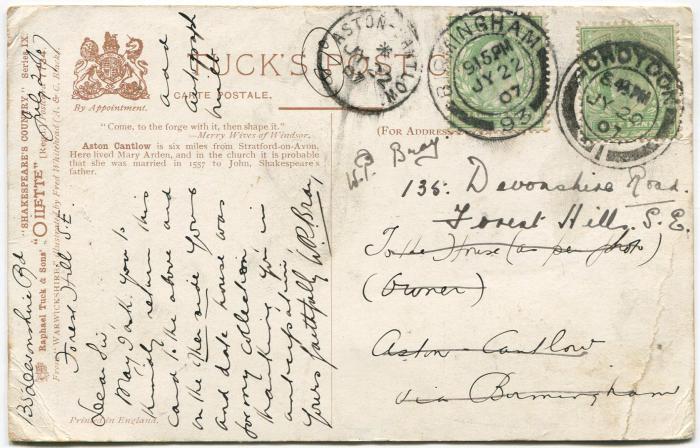 TUCK'S POST C
CARTE POSTALE.
By Appointment.
(FOR ADDRESS
"Come, to the forge with it, then shape it."
—Merry Wives of Windsor.
Aston Cantlow is six miles from Stratford-on-Avon.
Here lived Mary Arden, and in the church it is probable
that she was married in 1557 to John, Shakespeare's
father.
"SHAKESPEARE'S COUNTRY." Series IX.
Raphael Tuck & Sons' "OILETTE"
Printed in England.
ASTON-CANTLOW
JY 22
07
BIRMINGHAM
9 15 PM
JY 22
07
93
CROYDON
JY 29
W.P. Bray.
135. Devonshire Road.
Forest Hill. S.E.
To the House (as per photo)
(Owner)
Aston Cantlow
via Birmingham
135 Devonshire Rd
Forest Hill SE
Dear Sir,
May I ask you to
kindly return this
card to the above and
on the View side yours
and date house was
for my collection
thanking you in
anticipation
Yours faithfully W.P. Bray
add
autograph